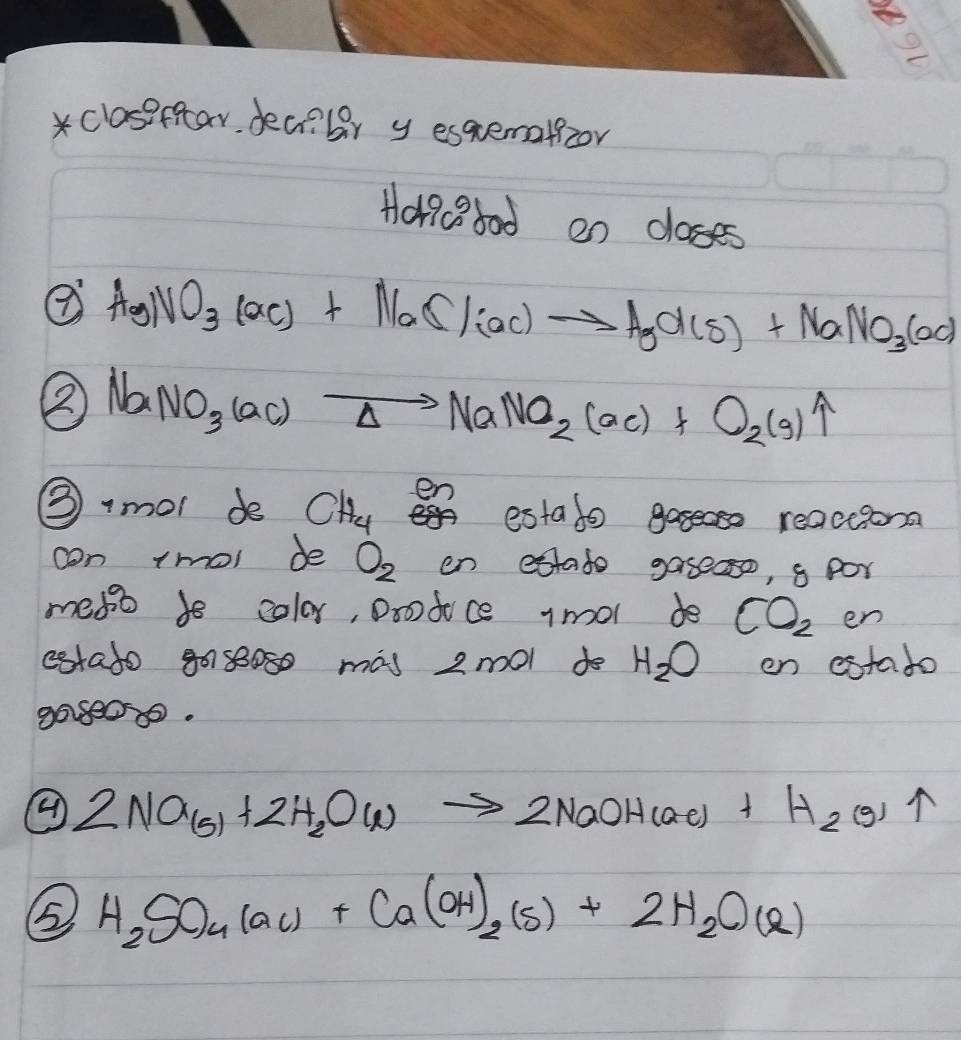 * clasificar. decribir y esquematizar
en clases
① AgNO₃ (ac) + NaCl (ac) → AgCl(s) + NaNO₃(ac)
② NaNO₃ (ac) →Δ NaNO₂ (ac) + O₂(g)↑
③ 1mol de CH₄ en estado gaseoso reacciona
con 1mol de O₂ en estado gaseoso, y por
medio de calor, produce 1mol de CO₂ en
estado gaseoso más 2mol de H₂O en estado
gaseoso.
④ 2Na(s) + 2H₂O(l) → 2NaOH(ac) + H₂(g)↑
⑤ H₂SO₄(ac) + Ca(OH)₂(s) + 2H₂O(l)